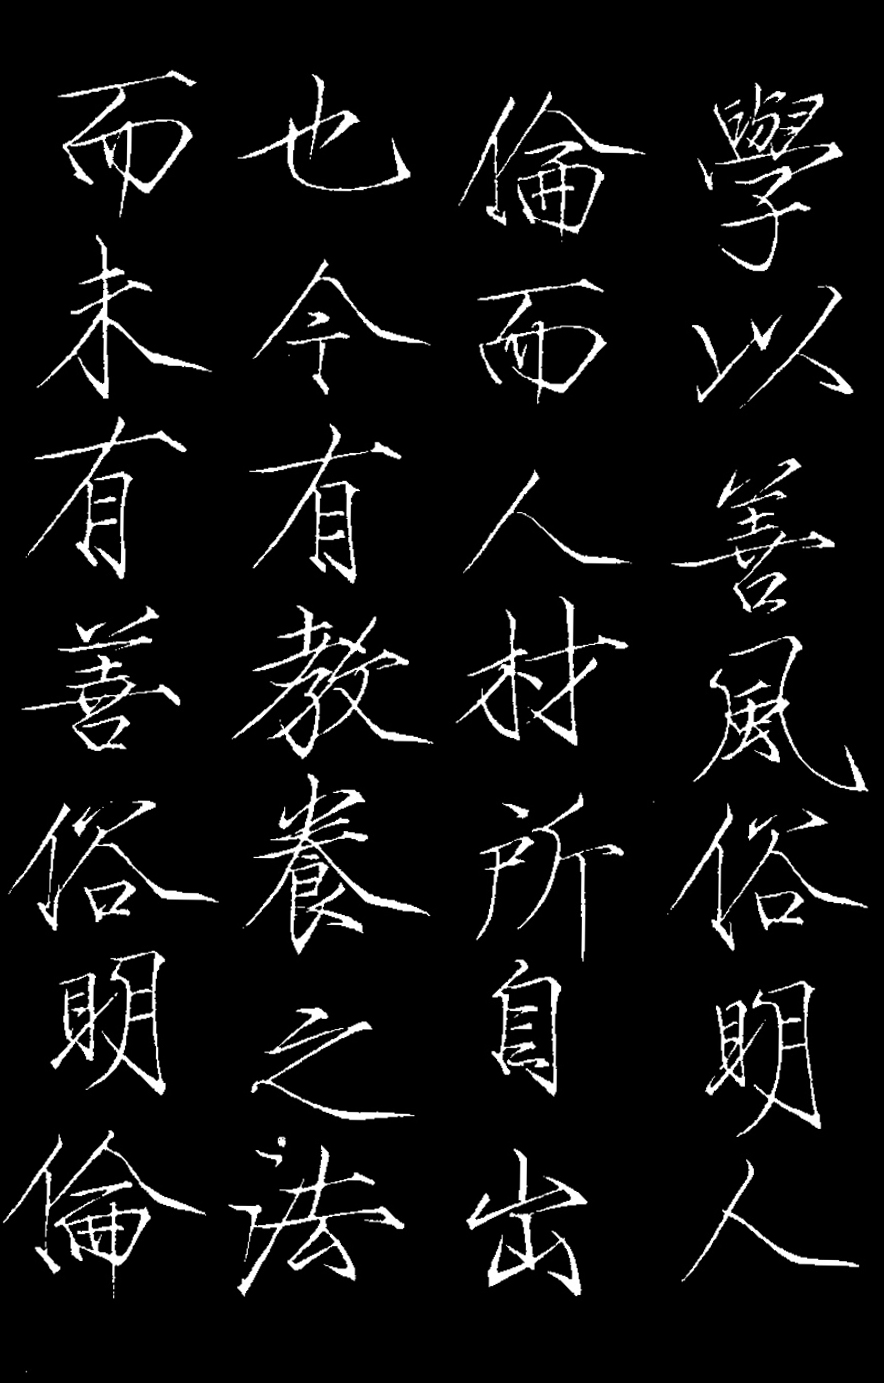 學以善風俗明人
倫而人材所自出
也今有教養之法
而未有善俗明倫